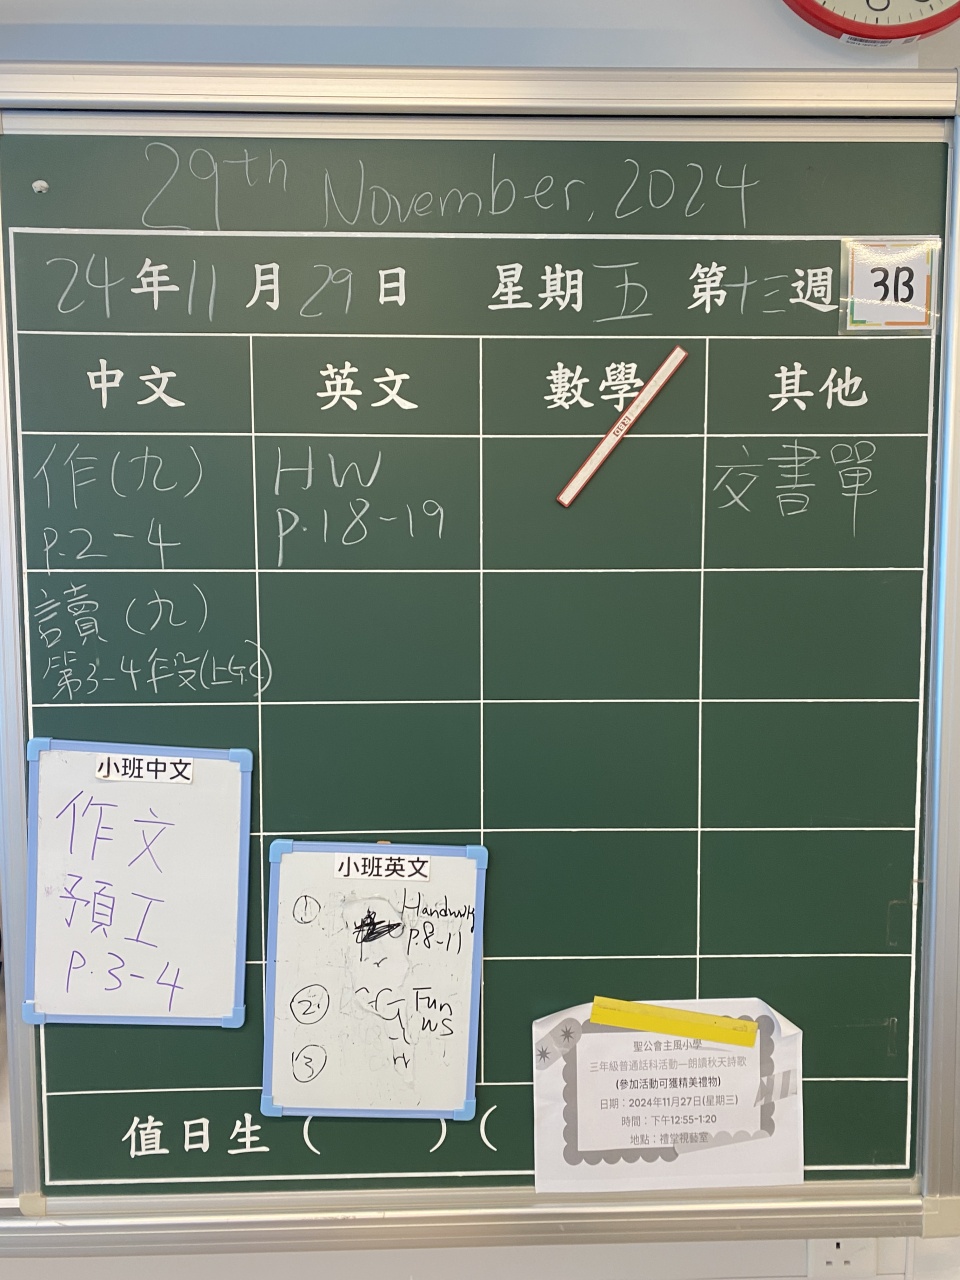 29th November, 2024
24年11月29日 星期五 第十三週
3B
中文 英文 數學 其他
作(九)
p.2-4
HW
p.18-19
交書單
讀(九)
第3-4年段(上
小班中文
作文
預工
p.3-4
小班英文
① Handwtg
p.8-11
② GG Fun
WS
③
值日生( )(
聖公會主風小學
三年級普通話科活動—朗讀秋天詩歌
(參加活動可獲精美禮物)
日期:2024年11月27日(星期三)
時間:下午12:55-1:20
地點:禮堂視藝室